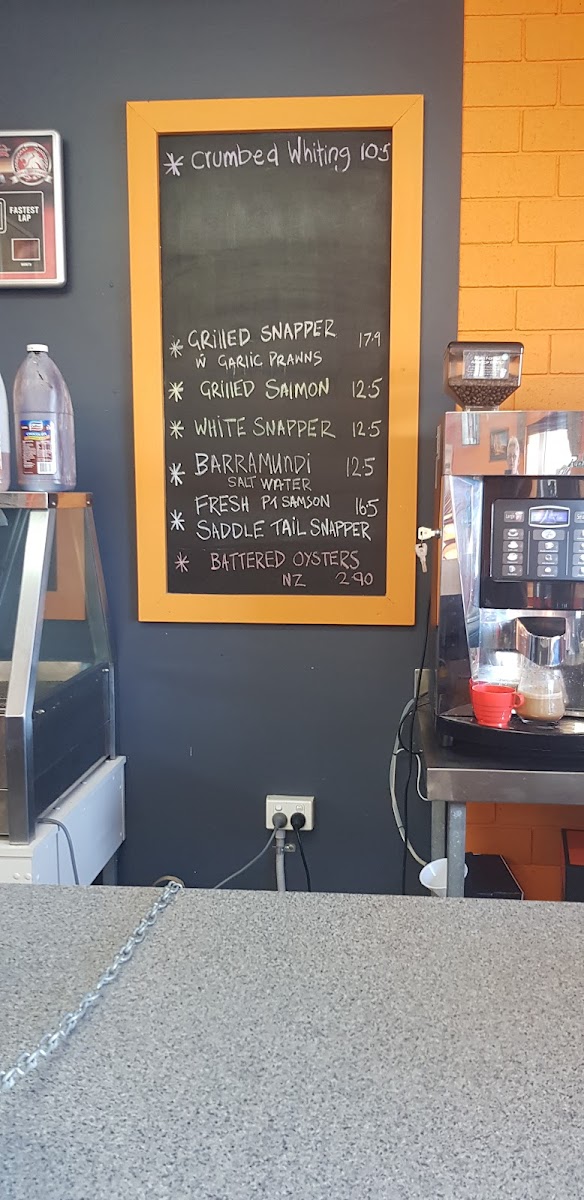 * Crumbed Whiting 10.5
* GRILLED SNAPPER 17.9
W GARLIC PRAWNS
* GRILLED SALMON 12.5
* WHITE SNAPPER 12.5
* BARRAMUNDI 12.5
SALT WATER
* FRESH PT SAMSON 16.5
SADDLE TAIL SNAPPER
* BATTERED OYSTERS
NZ 2.90
FASTEST
LAP